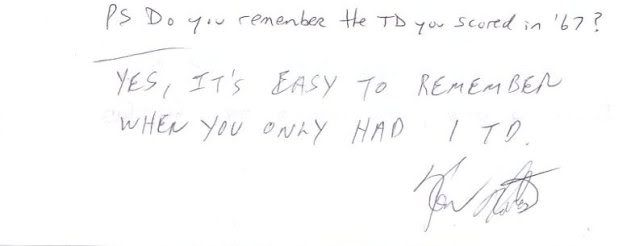 PS Do you remember the TD you scored in '67?
YES, IT'S EASY TO REMEMBER
WHEN YOU ONLY HAD 1 TD.